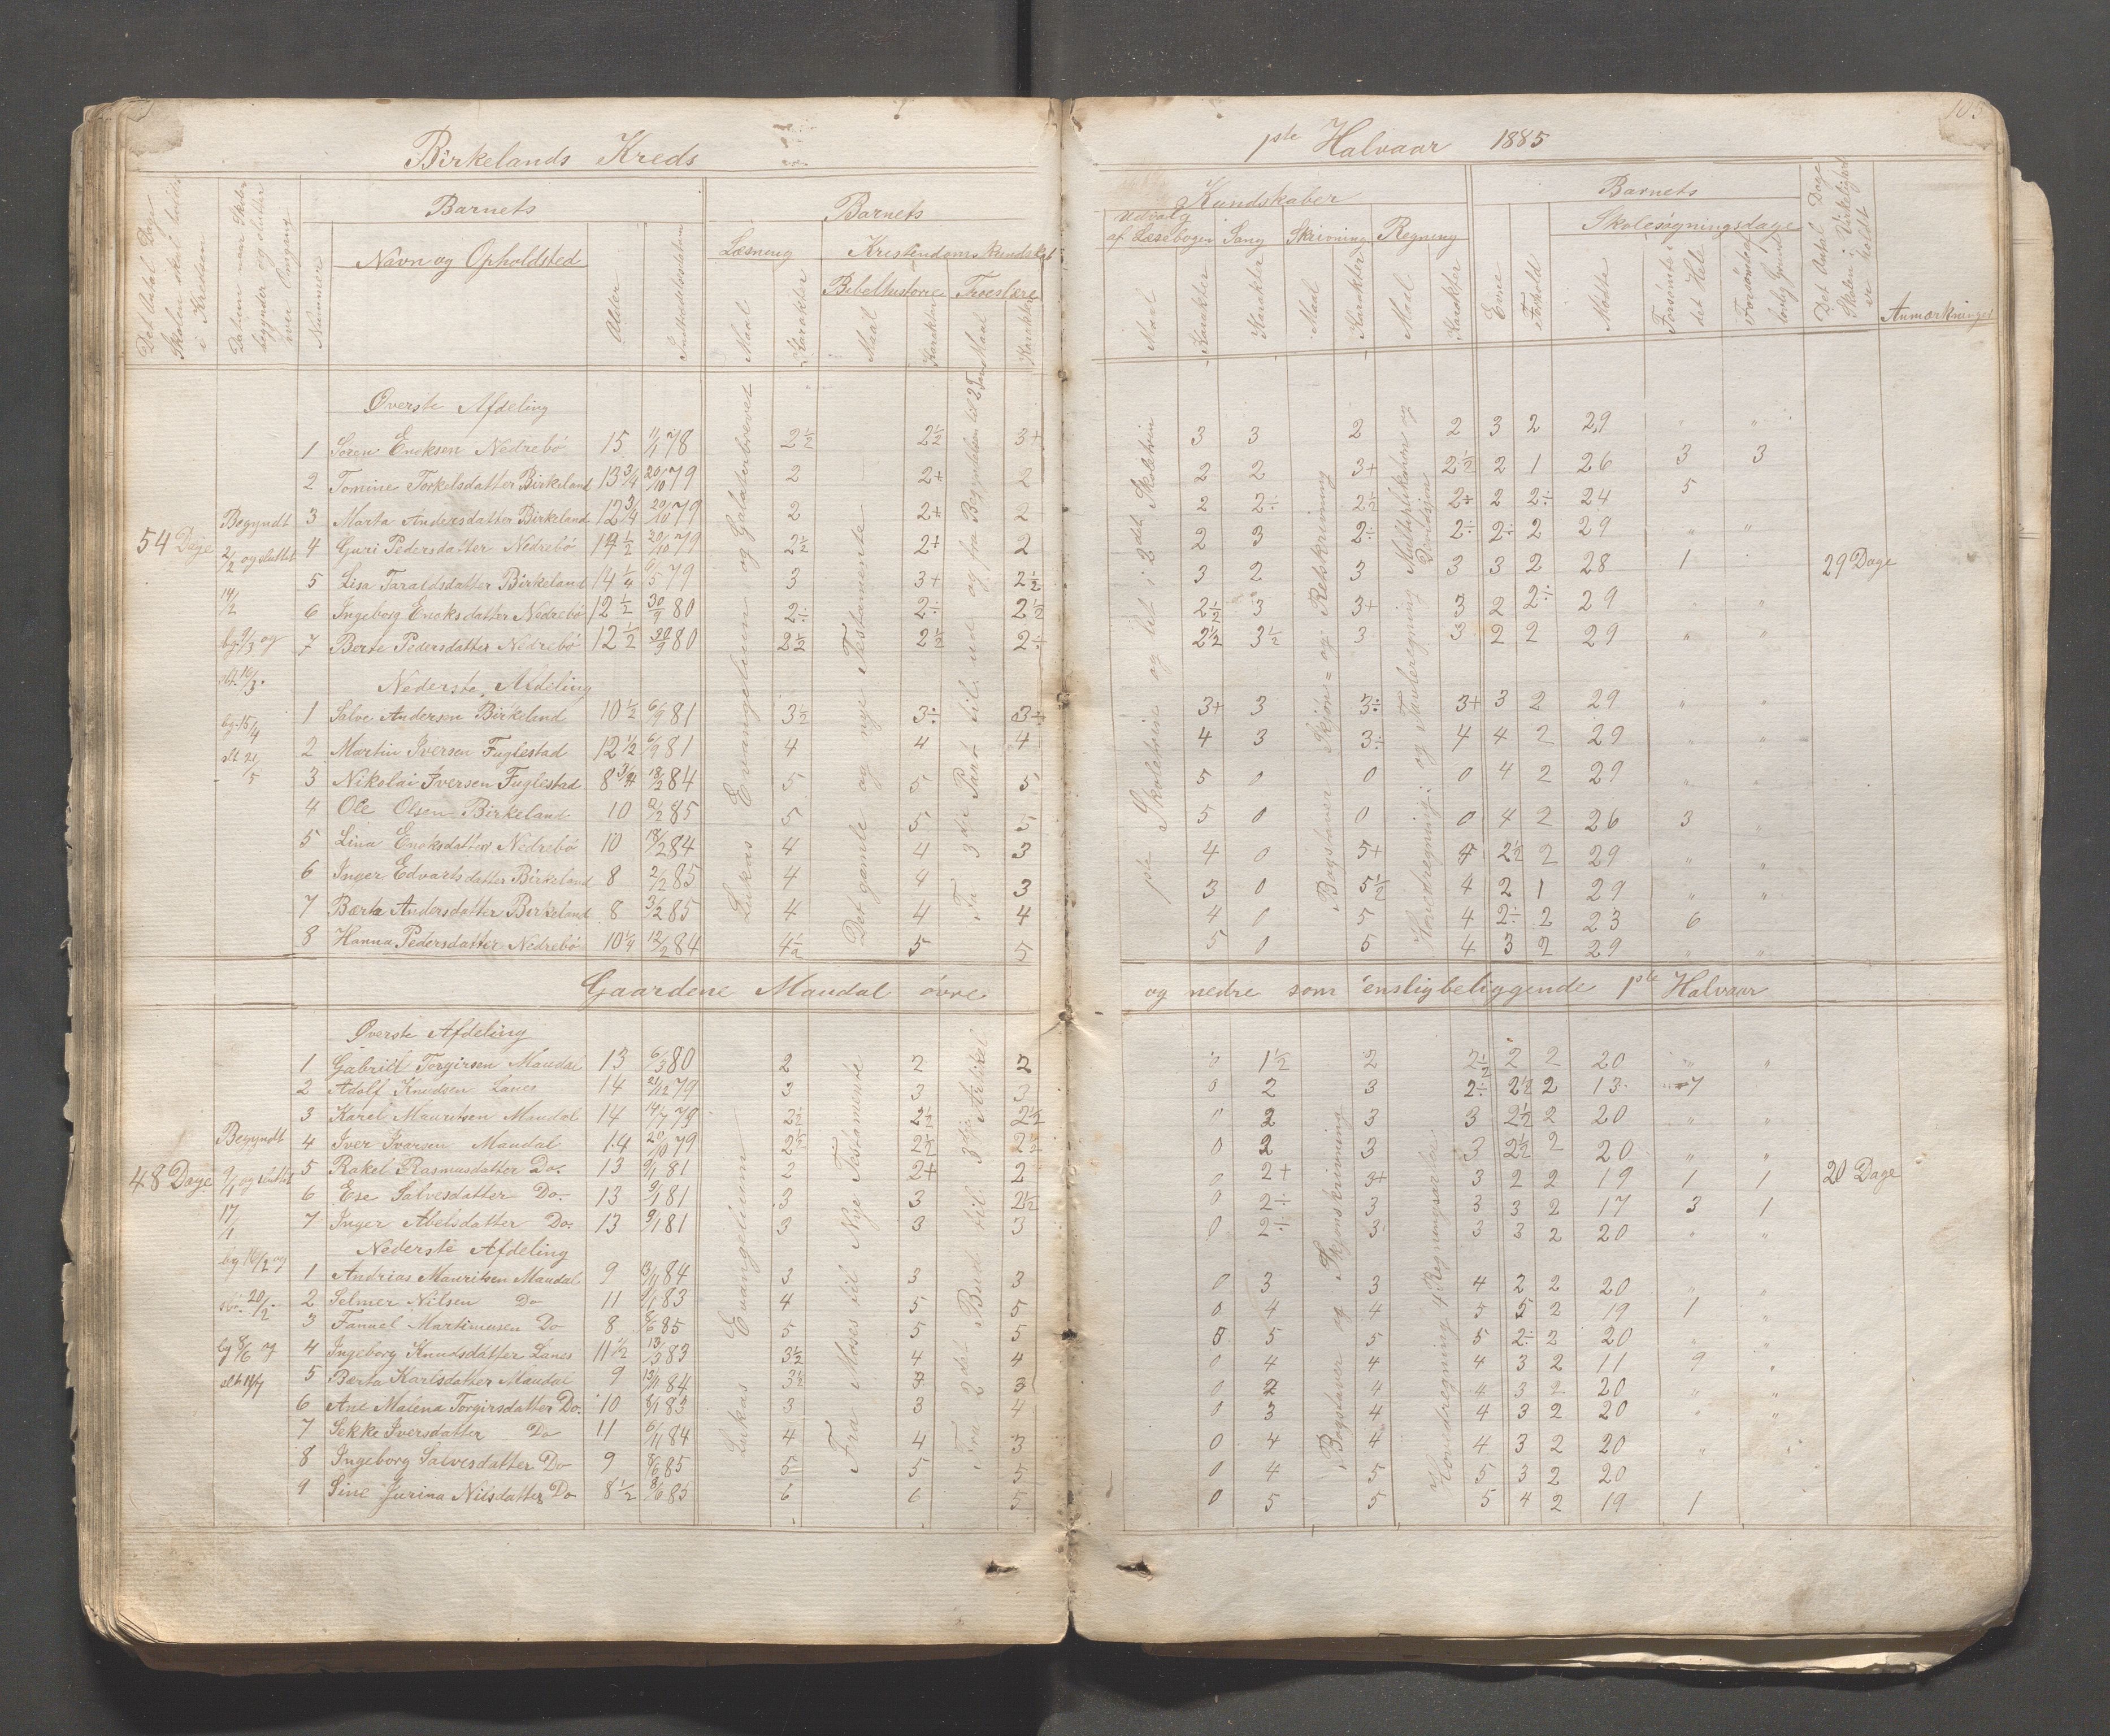 Birkelands Kreds
1ste Halvaar 1885
Det Antal Dage Skolen skal holdes i Kredsen
Datum naar Skolen begynder og slutter hver Omgang
Nummer
Barnets
Navn og Opholdsted
Alder
Indtrædelsesdatum
Barnets
Kundskaber
Læsning
Maal
Karakter
Kristendomskundskab
Bibelhistorie
Maal
Karakter
Troeslære
Maal
Karakter
Udvalg af Læsebogen
Maal
Karakter
Sang
Karakter
Skrivning
Maal
Karakter
Regning
Maal
Karakter
Barnets
Evne
Forhold
Skolesøgningsdage
Mødte
Forsømte i det Hele
Forsømte af lovlig Grund
Det Antal Dage Skolen i Virkelighed er holdt
Anmærkninger
Øverste Afdeling
1 Søren Enoksen Nedrebö 15 11/1 78 2½ 2½ 3+ 3 3 2 2 3 2 29 " "
2 Tomine Torkelsdatter Birkeland 13¾ 20/10 79 2 2+ 2 2 2 3+ 2½ 2 1 26 3 3
3 Marta Andersdatter Birkeland 12¾ 20/10 79 2 2+ 2 2 2÷ 2½ 2÷ 2 2÷ 24 5
4 Guri Pedersdatter Nedrebö 14½ 20/10 79 2½ 2+ 2 2 3 2÷ 2÷ 2÷ 2 29 " "
5 Lisa Taraldsdatter Birkeland 14¼ 6/5 79 3 3+ 2½ 3 2 3 3 3 2 28 1
6 Ingeborg Enoksdatter Nedrebö 12½ 30/9 80 2÷ 2÷ 2½ 2½ 3 3+ 3 2 2÷ 29 " "
7 Berte Pedersdatter Nedrebö 12½ 30/9 80 2½ 2½ 2÷ 2½ 3½ 3 3 2 2 29 " "
54 Dage
Begyndt 2/2 og sluttet 14/2
bg. 9/3 og slt. 10/3.
bg. 15/4 slt 21/5
29 Dage
Nederste Afdeling
1 Salve Andersen Birkeland 10½ 6/9 81 3½ 3÷ 3÷ 3+ 3 3÷ 3+ 3 2 29 " "
2 Martin Iversen Fuglestad 12½ 6/9 81 4 4 4 4 3 3÷ 4 4 2 29 " "
3 Nikolai Iversen Fuglestad 8¾ 18/2 84 5 5 5 5 0 0 0 4 2 29 " "
4 Ole Olsen Birkeland 10 2/2 85 5 5 5 5 0 0 0 4 2 26 3 "
5 Lina Enoksdatter Nedrebö 10 18/2 84 4 4 3 4 0 5+ 4 2½ 2 29 " "
6 Inger Edvartsdatter Birkeland 8 2/2 85 4 4 3 3 0 5½ 4 2 1 29 " "
7 Bærta Andersdatter Birkeland 8 3/2 85 4 4 4 4 0 5 4 2÷ 2 23 6
8 Hanna Pedersdatter Nedrebö 10¼ 12/2 84 4½ 5 5 5 0 5 4 3 2 29 " "
Lukas Evangelium og Galaterbrevet
Det gamle og nye Testamente
Fra 3die Part til ud og fra Begyndelsen til 2
1ste Skoletrin og lit i 2det Skoletrin
Bogstaver Skjön= og Retskrivning
Hovedregning og Tavleregning Multiplikation og Division
Gaardene Maudal övre og nedre som ensligbeliggende 1ste Halvaar
Øverste Afdeling
1 Gabriel Torgirsen Maudal 13 6/3 80 2 2 2 " 1½ 2 2½ 2 2 20 " "
2 Adolf Knudsen Lanes 14 21/12 79 3 3 3 0 2 3 2÷ 2½ 2 13 7
3 Karel Mauritsen Maudal 14 14/7 79 2½ 2½ 2½ " 2 3 3 2½ 2 20 " "
4 Iver Ivarsen Maudal 14 20/10 79 2½ 2½ 2½ 0 2 3 3 2½ 2 20 " "
5 Rakel Rasmusdatter Do. 13 9/1 81 2 2+ 2 0 2+ 3+ 3 2 2 19 1 1
6 Ese Salvesdatter Do. 13 9/1 81 3 3 2½ 0 2÷ 3 3 3 2 17 3 1
7 Inger Abelsdatter Do. 13 9/1 81 3 3 3 0 2÷ 3 3 3 2 20 " "
48 Dage
Begyndt 9/1 og sluttet 17/1
bg 16/2 og slt. 20/2.
bg 8/6 og slt 14/7
20 Dage
Nederste Afdeling
1 Andrias Mauritsen Maudal 9 13/11 84 3 3 3 0 3 3 4 2 2 20 " "
2 Selmer Nilsen Do 11 9/1 83 4 5 5 0 4 4 5 5 2 19 1
3 Fanuel Martinusen Do 8 8/6 85 5 5 5 5 5 5 5 2÷ 2 20 " "
4 Ingeborg Knudsdatter Lanes 11½ 13/3 83 3½ 4 4 0 4 4 4 3 2 11 9 "
5 Bærta Karlsdatter Maudal 9 13/11 84 3½ 3 3 0 2 4 4 3 2 20 " "
6 Ane Malena Torgirsdatter Do. 10 8/1 83 3 3 4 0 3 4 4 3 2 20 " "
7 Sekke Iversdatter Do 11 6/11 84 4 4 3 0 4 4 4 3 2 20 " "
8 Ingeborg Salvesdatter Do 9 8/6 85 5 5 5 0 4 5 5 3 2 20
9 Sine Jurina Nilsdatter Do 8½ 8/6 85 6 6 5 0 5 5 5 4 2 19 1
Lukas Evangelium
Fra Moses til Nye Testamente
Fra 2det Bud til 3die Artikel
Bogstaver og Skjönskrivning
Hovedregning 4 Regningsarter